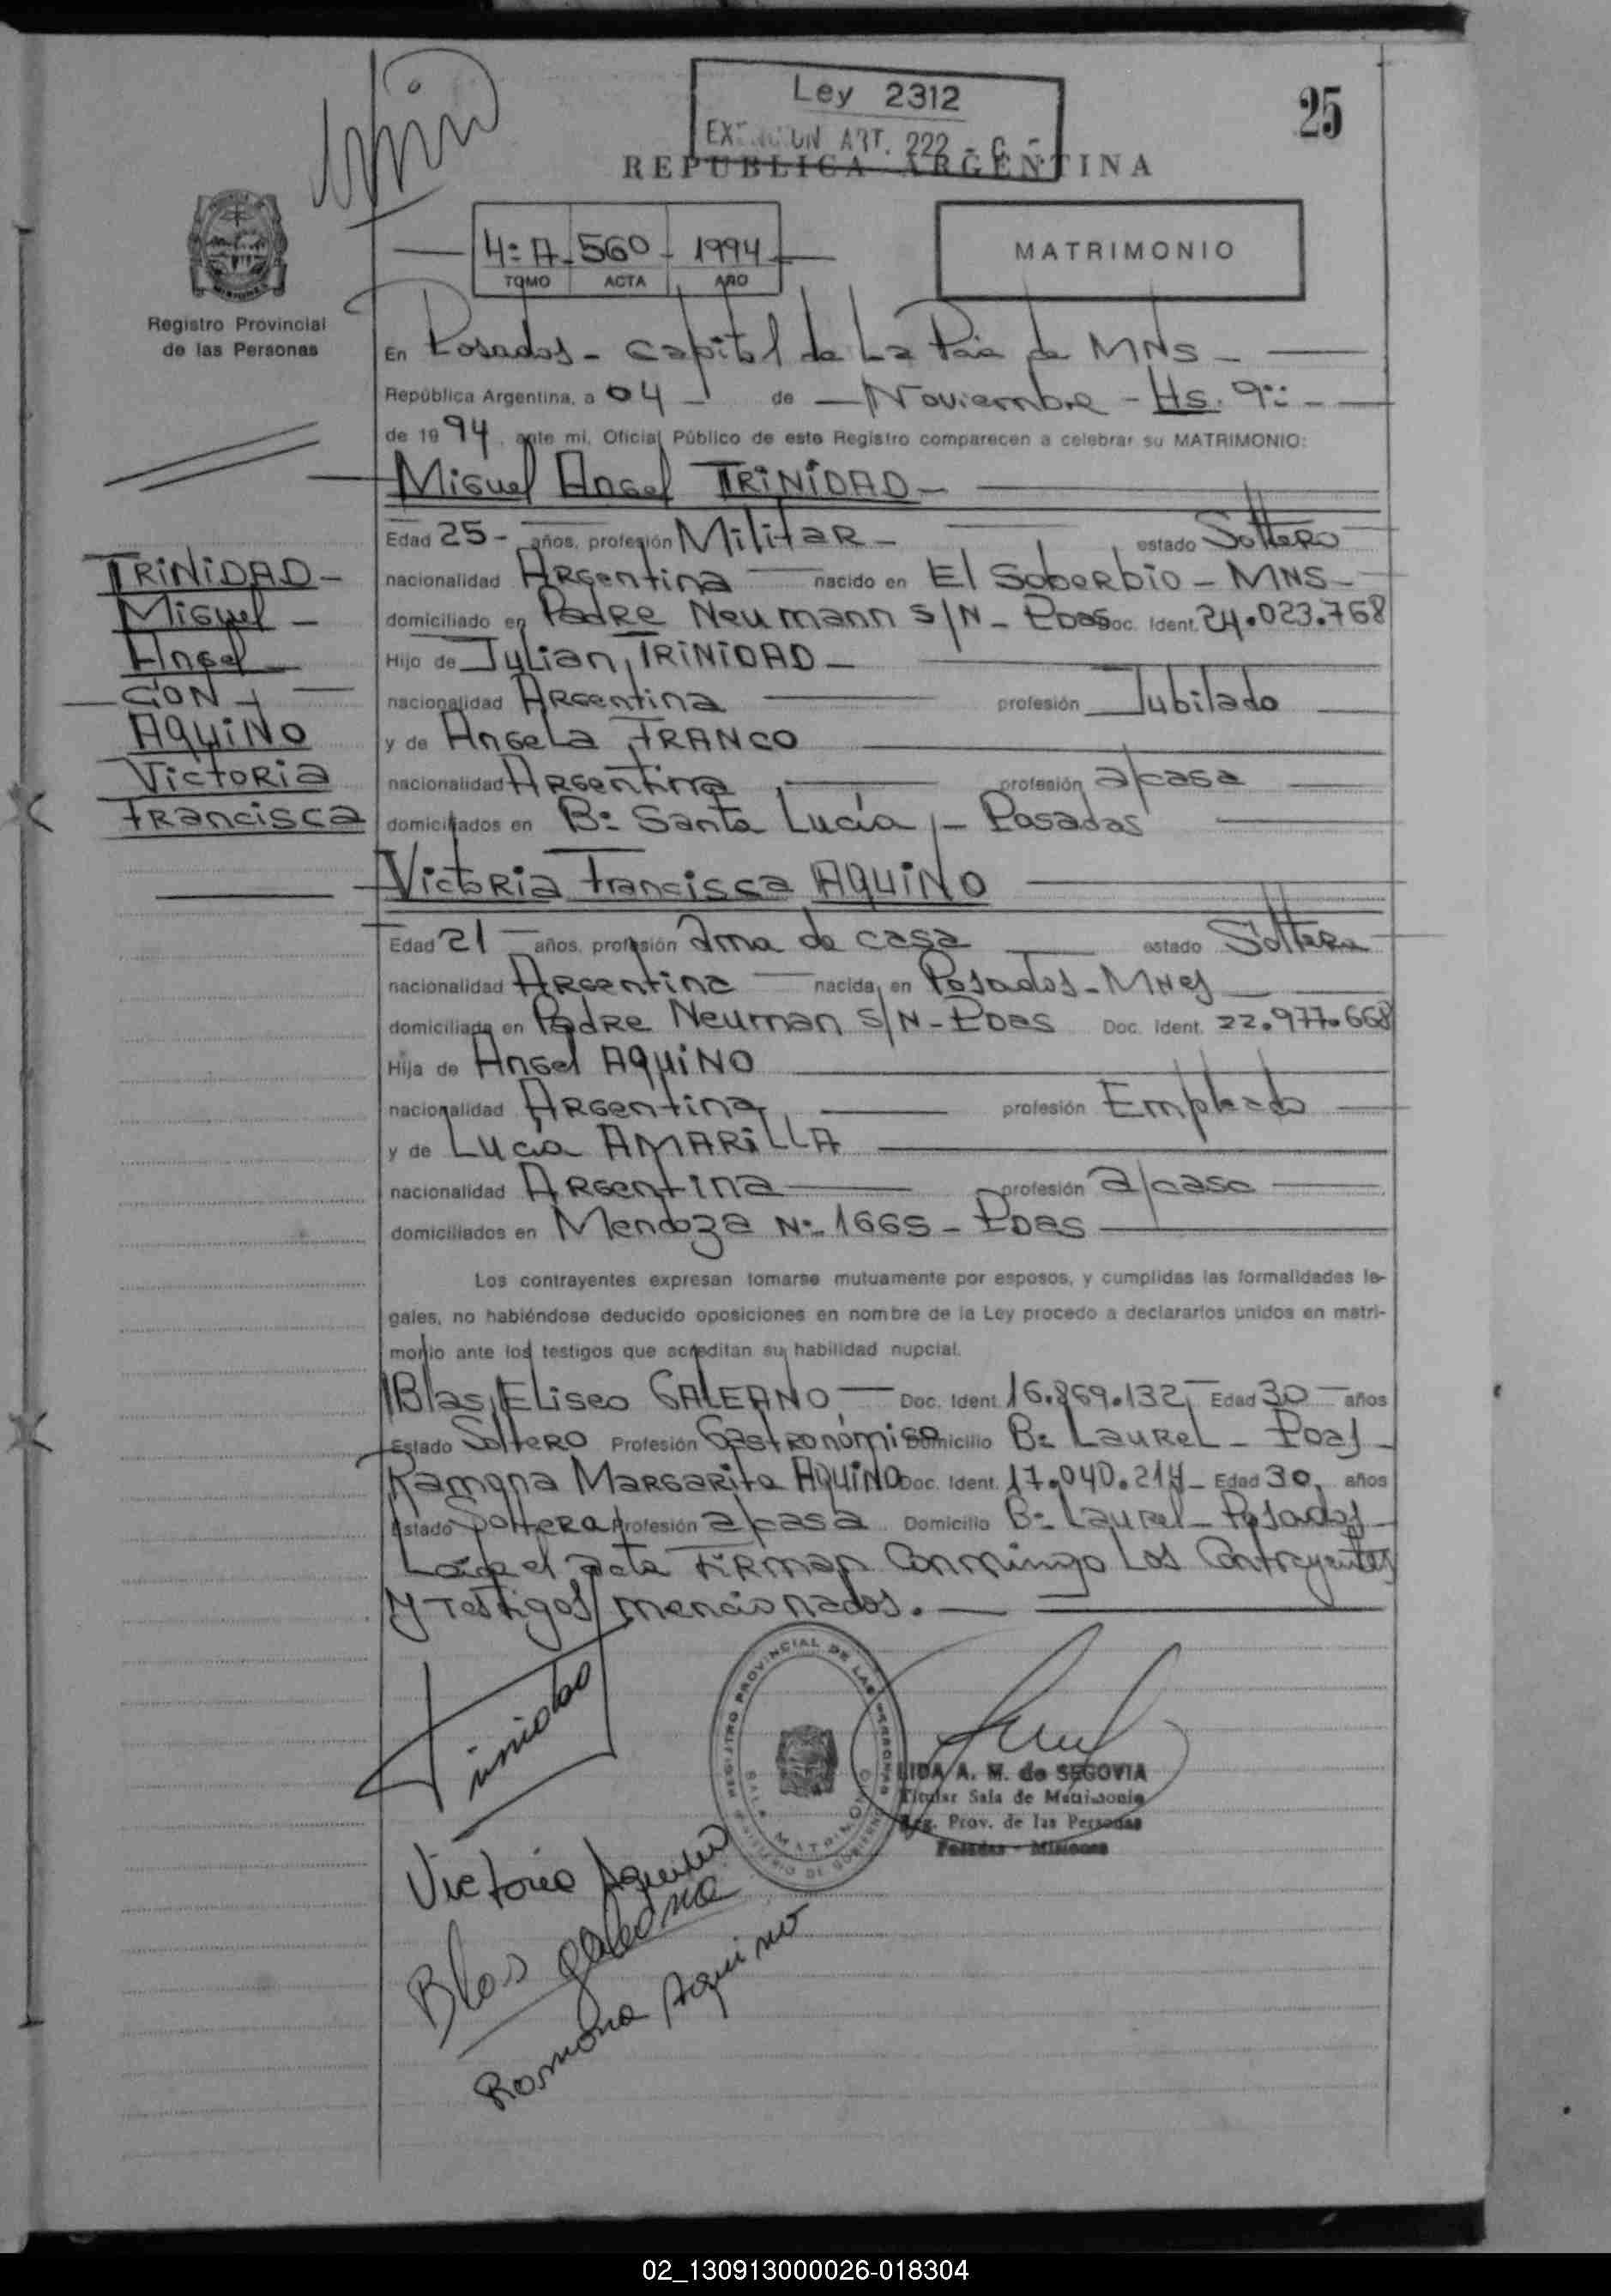 Ley 2312
25
ART. 222 - C -
REPUBLICA ARGENTINA
4:A - 560 - 1994
TOMO ACTA AÑO
MATRIMONIO
Registro Provincial
de las Personas
En Posadas - Capital de La Pcia de MNS -
República Argentina, a 04 - de - Noviembre - Hs. 9:: -
de 1994, ante mi, Oficial Público de este Registro comparecen a celebrar su MATRIMONIO:
Miguel Angel TRINIDAD -
Edad 25 - años, profesión Militar - estado Soltero
nacionalidad Argentina nacido en El Soberbio - MNS -
domiciliado en Padre Neumann S/N - Pdas Doc. Ident. 24.023.768
Hijo de Julian TRINIDAD -
nacionalidad Argentina profesión Jubilado
y de Angela FRANCO
nacionalidad Argentina profesión a/casa
domiciliados en B: Santa Lucía - Posadas
TRINIDAD -
Miguel -
Angel
CON
AQUINO
Victoria
Francisca
Victoria Francisca AQUINO
Edad 21 - años, profesión Ama de casa estado Soltera
nacionalidad Argentina nacida en Posadas - Mnes
domiciliada en Padre Neuman S/N - Pdas Doc. Ident. 22.977.668
Hija de Angel AQUINO
nacionalidad Argentina profesión Empleado
y de Lucia AMARILLA
nacionalidad Argentina profesión a/casa
domiciliados en Mendoza N: 1665 - Pdas
Los contrayentes expresan tomarse mutuamente por esposos, y cumplidas las formalidades le-
gales, no habiéndose deducido oposiciones en nombre de la Ley procedo a declararlos unidos en matri-
monio ante los testigos que acreditan su habilidad nupcial.
Blas Eliseo GALEANO - Doc. Ident. 16.869.132 - Edad 30 - años
Estado Soltero Profesión Gastronómico Domicilio B: Laurel - Pdas -
Ramona Margarita AQUINO Doc. Ident. 17.040.214 - Edad 30 años
Estado Soltera Profesión a/casa Domicilio B: Laurel - Posadas
Leída el acta Firman Conmingo Los Contrayentes
y Testigos mencionados. -
Trinidad
REGISTRO PROVINCIAL DE LAS PERSONAS
SALA MATRIMONIO
MINISTERIO DE GOBIERNO
LIDA A. M. de SEGOVIA
Titular Sala de Matrimonio
Reg. Prov. de las Personas
Posadas - Misiones
Victoria Aquino
Blas Galeano
Ramona Aquino
02_130913000026-018304